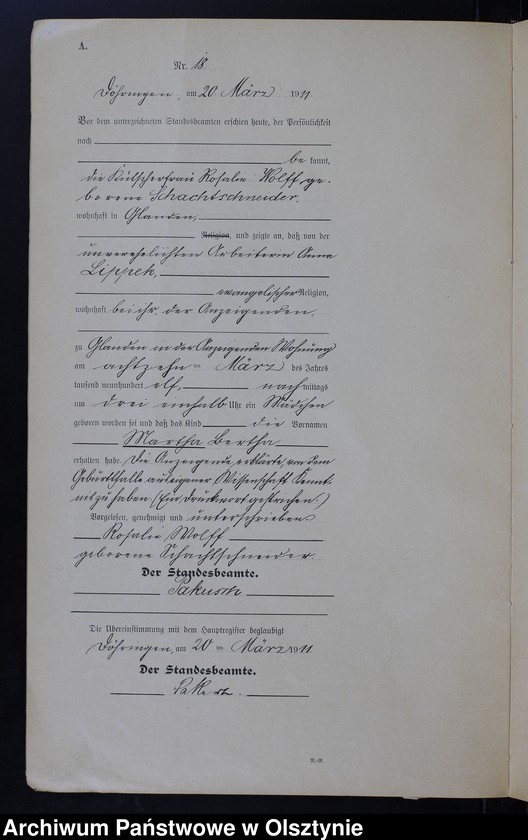 A.
Nr. 18.
Döhringen, am 20 März 1911.
Vor dem unterzeichneten Standesbeamten erschien heute, der Persönlichkeit
nach
be kannt,
die Kutscherfrau Rosalie Wolff ge-
borene Schachtschneider,
wohnhaft in Glanden,
Religion, und zeigte an, daß von der
unverehelichten Arbeiterin Anna
Lippek,
evangelischer Religion,
wohnhaft bei ihr, der Anzeigenden,
zu Glanden in der Anzeigenden Wohnung
am achtzehn ten März des Jahres
tausend neunhundert elf, nach mittags
um drei einhalb Uhr ein Mädchen
geboren worden sei und daß das Kind die Vornamen
Martha Bertha
erhalten habe. Die Anzeigende erklärte, von dem
Geburtsfalle aus eigener Wissenschaft Kennt-
nis zu haben. (Ein Druckwort gestrichen.)
Vorgelesen, genehmigt und unterschrieben
Rosalie Wolff
geborene Schachtschneider.
Der Standesbeamte.
Die Übereinstimmung mit dem Hauptregister beglaubigt
Döhringen, am 20 ten März 1911.
Der Standesbeamte.
R.-R.
Archiwum Państwowe w Olsztynie